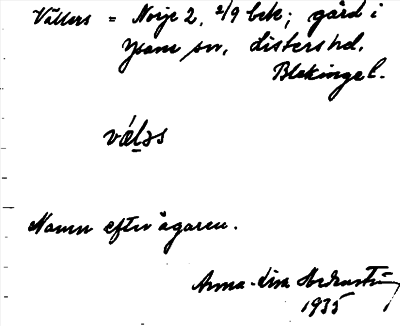 Vällers = Norje 2, 2/9 bek; gård i
Ysane sn, Listers hd,
Blekinge l.
vǽləs
Namn efter ägaren.
Anna-Lisa
1935